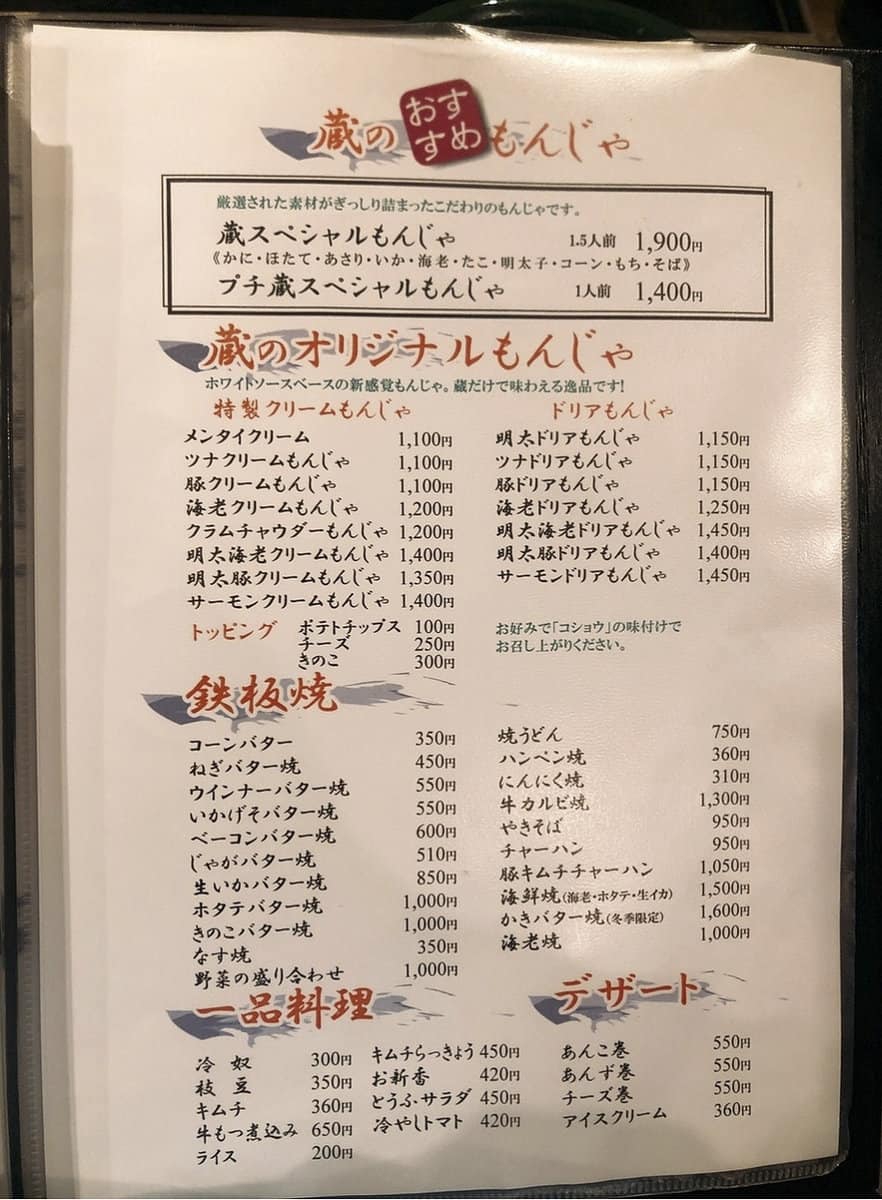 蔵の おすすめ もんじゃ
厳選された素材がぎっしり詰まったこだわりのもんじゃです。
蔵スペシャルもんじゃ 1.5人前 1,900円
《かに・ほたて・あさり・いか・海老・たこ・明太子・コーン・もち・そば》
プチ蔵スペシャルもんじゃ 1人前 1,400円
蔵のオリジナルもんじゃ
ホワイトソースベースの新感覚もんじゃ。蔵だけで味わえる逸品です!
特製クリームもんじゃ
メンタイクリーム 1,100円
ツナクリームもんじゃ 1,100円
豚クリームもんじゃ 1,100円
海老クリームもんじゃ 1,200円
クラムチャウダーもんじゃ 1,200円
明太海老クリームもんじゃ 1,400円
明太豚クリームもんじゃ 1,350円
サーモンクリームもんじゃ 1,400円
トッピング ポテトチップス 100円
チーズ 250円
きのこ 300円
ドリアもんじゃ
明太ドリアもんじゃ 1,150円
ツナドリアもんじゃ 1,150円
豚ドリアもんじゃ 1,150円
海老ドリアもんじゃ 1,250円
明太海老ドリアもんじゃ 1,450円
明太豚ドリアもんじゃ 1,400円
サーモンドリアもんじゃ 1,450円
お好みで「コショウ」の味付けで
お召し上がりください。
鉄板焼
コーンバター 350円
ねぎバター焼 450円
ウインナーバター焼 550円
いかげそバター焼 550円
ベーコンバター焼 600円
じゃがバター焼 510円
生いかバター焼 850円
ホタテバター焼 1,000円
きのこバター焼 1,000円
なす焼 350円
野菜の盛り合わせ 1,000円
焼うどん 750円
ハンペン焼 360円
にんにく焼 310円
牛カルビ焼 1,300円
やきそば 950円
チャーハン 950円
豚キムチチャーハン 1,050円
海鮮焼(海老・ホタテ・生イカ) 1,500円
かきバター焼(冬季限定) 1,600円
海老焼 1,000円
一品料理
冷奴 300円
枝豆 350円
キムチ 360円
牛もつ煮込み 650円
ライス 200円
キムチらっきょう 450円
お新香 420円
とうふサラダ 450円
冷やしトマト 420円
デザート
あんこ巻 550円
あんず巻 550円
チーズ巻 550円
アイスクリーム 360円